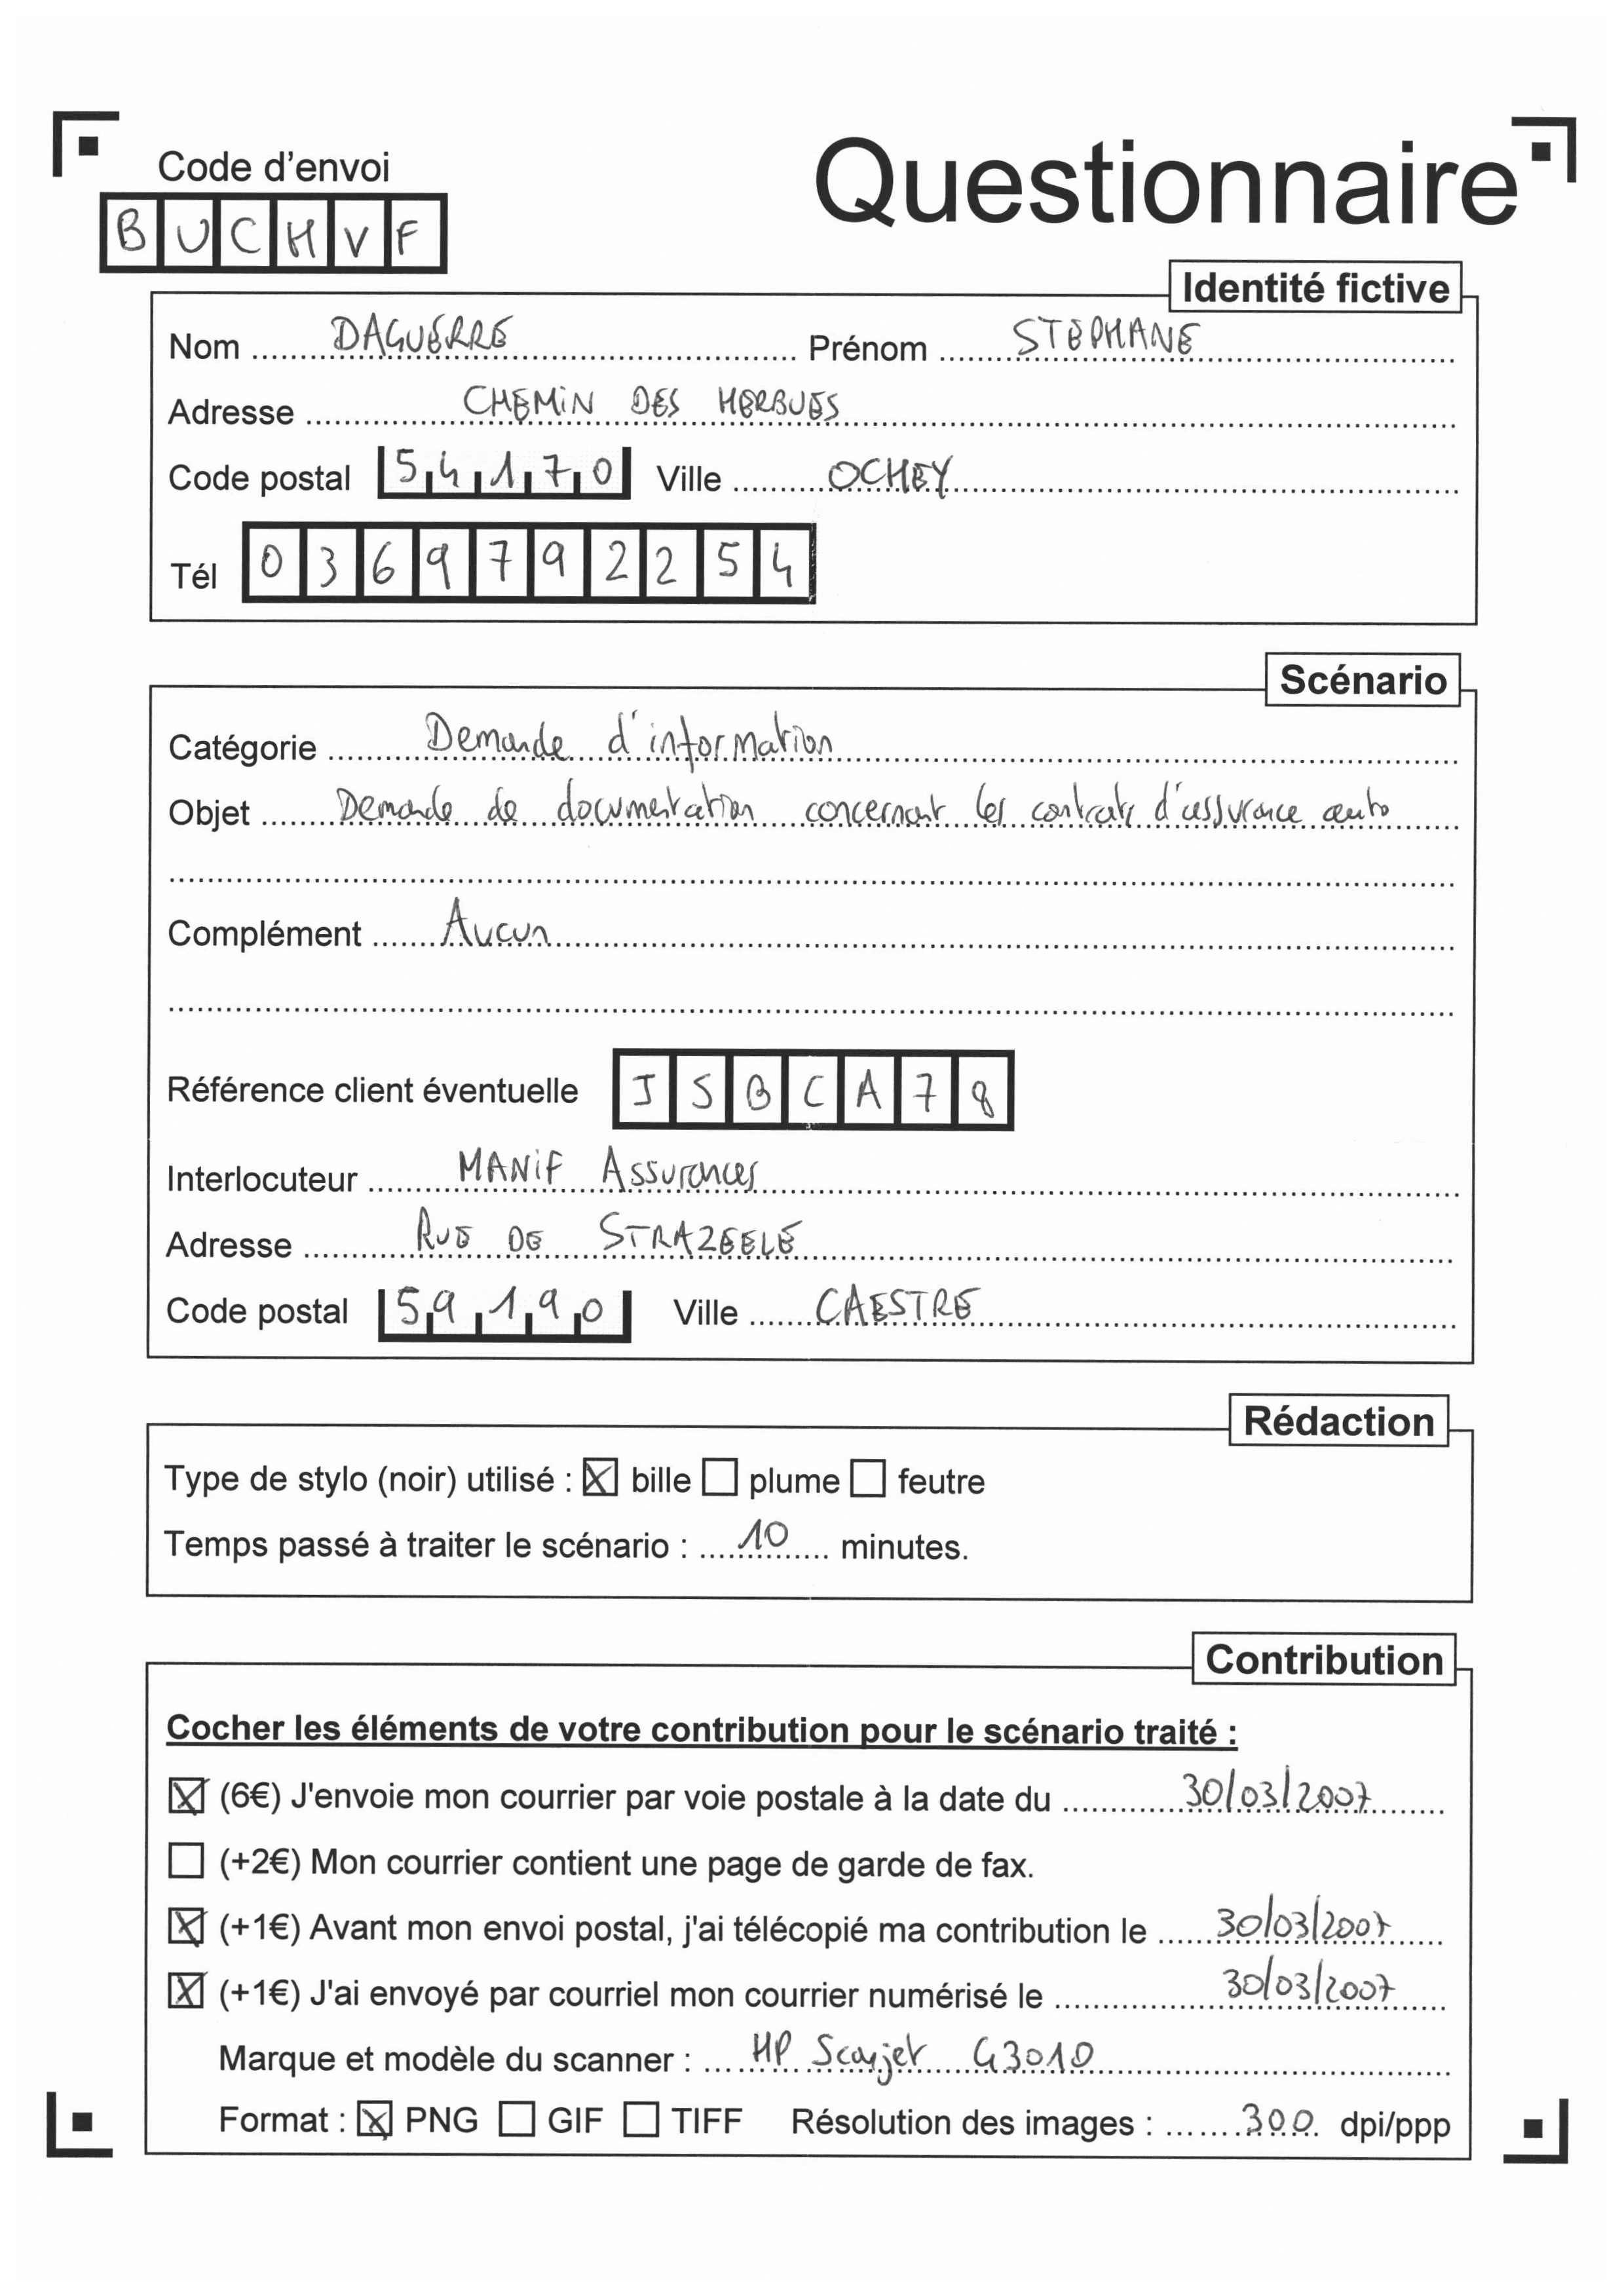 Code d'envoi
Questionnaire
BUCHVF
Identité fictive
Nom DAGUERRE Prénom STEPHANE
Adresse CHEMIN DES HERBUES
Code postal 54170 Ville OCHEY
Tél 0369792254
Scénario
Catégorie Demande d'information
Objet Demande de documentation concernant les contrats d'assurance auto
Complément Aucun
Référence client éventuelle JSBCA78
Interlocuteur MANIF Assurances
Adresse RUE DE STRAZEELE
Code postal 59190 Ville CAESTRE
Rédaction
Type de stylo (noir) utilisé : ☒ bille ☐ plume ☐ feutre
Temps passé à traiter le scénario : 10 minutes.
Contribution
Cocher les éléments de votre contribution pour le scénario traité :
☒ (6€) J'envoie mon courrier par voie postale à la date du 30/03/2007
☐ (+2€) Mon courrier contient une page de garde de fax.
☒ (+1€) Avant mon envoi postal, j'ai télécopié ma contribution le 30/03/2007
☒ (+1€) J'ai envoyé par courriel mon courrier numérisé le 30/03/2007
Marque et modèle du scanner : HP Scanjet G3010
Format : ☒ PNG ☐ GIF ☐ TIFF Résolution des images : 300 dpi/ppp